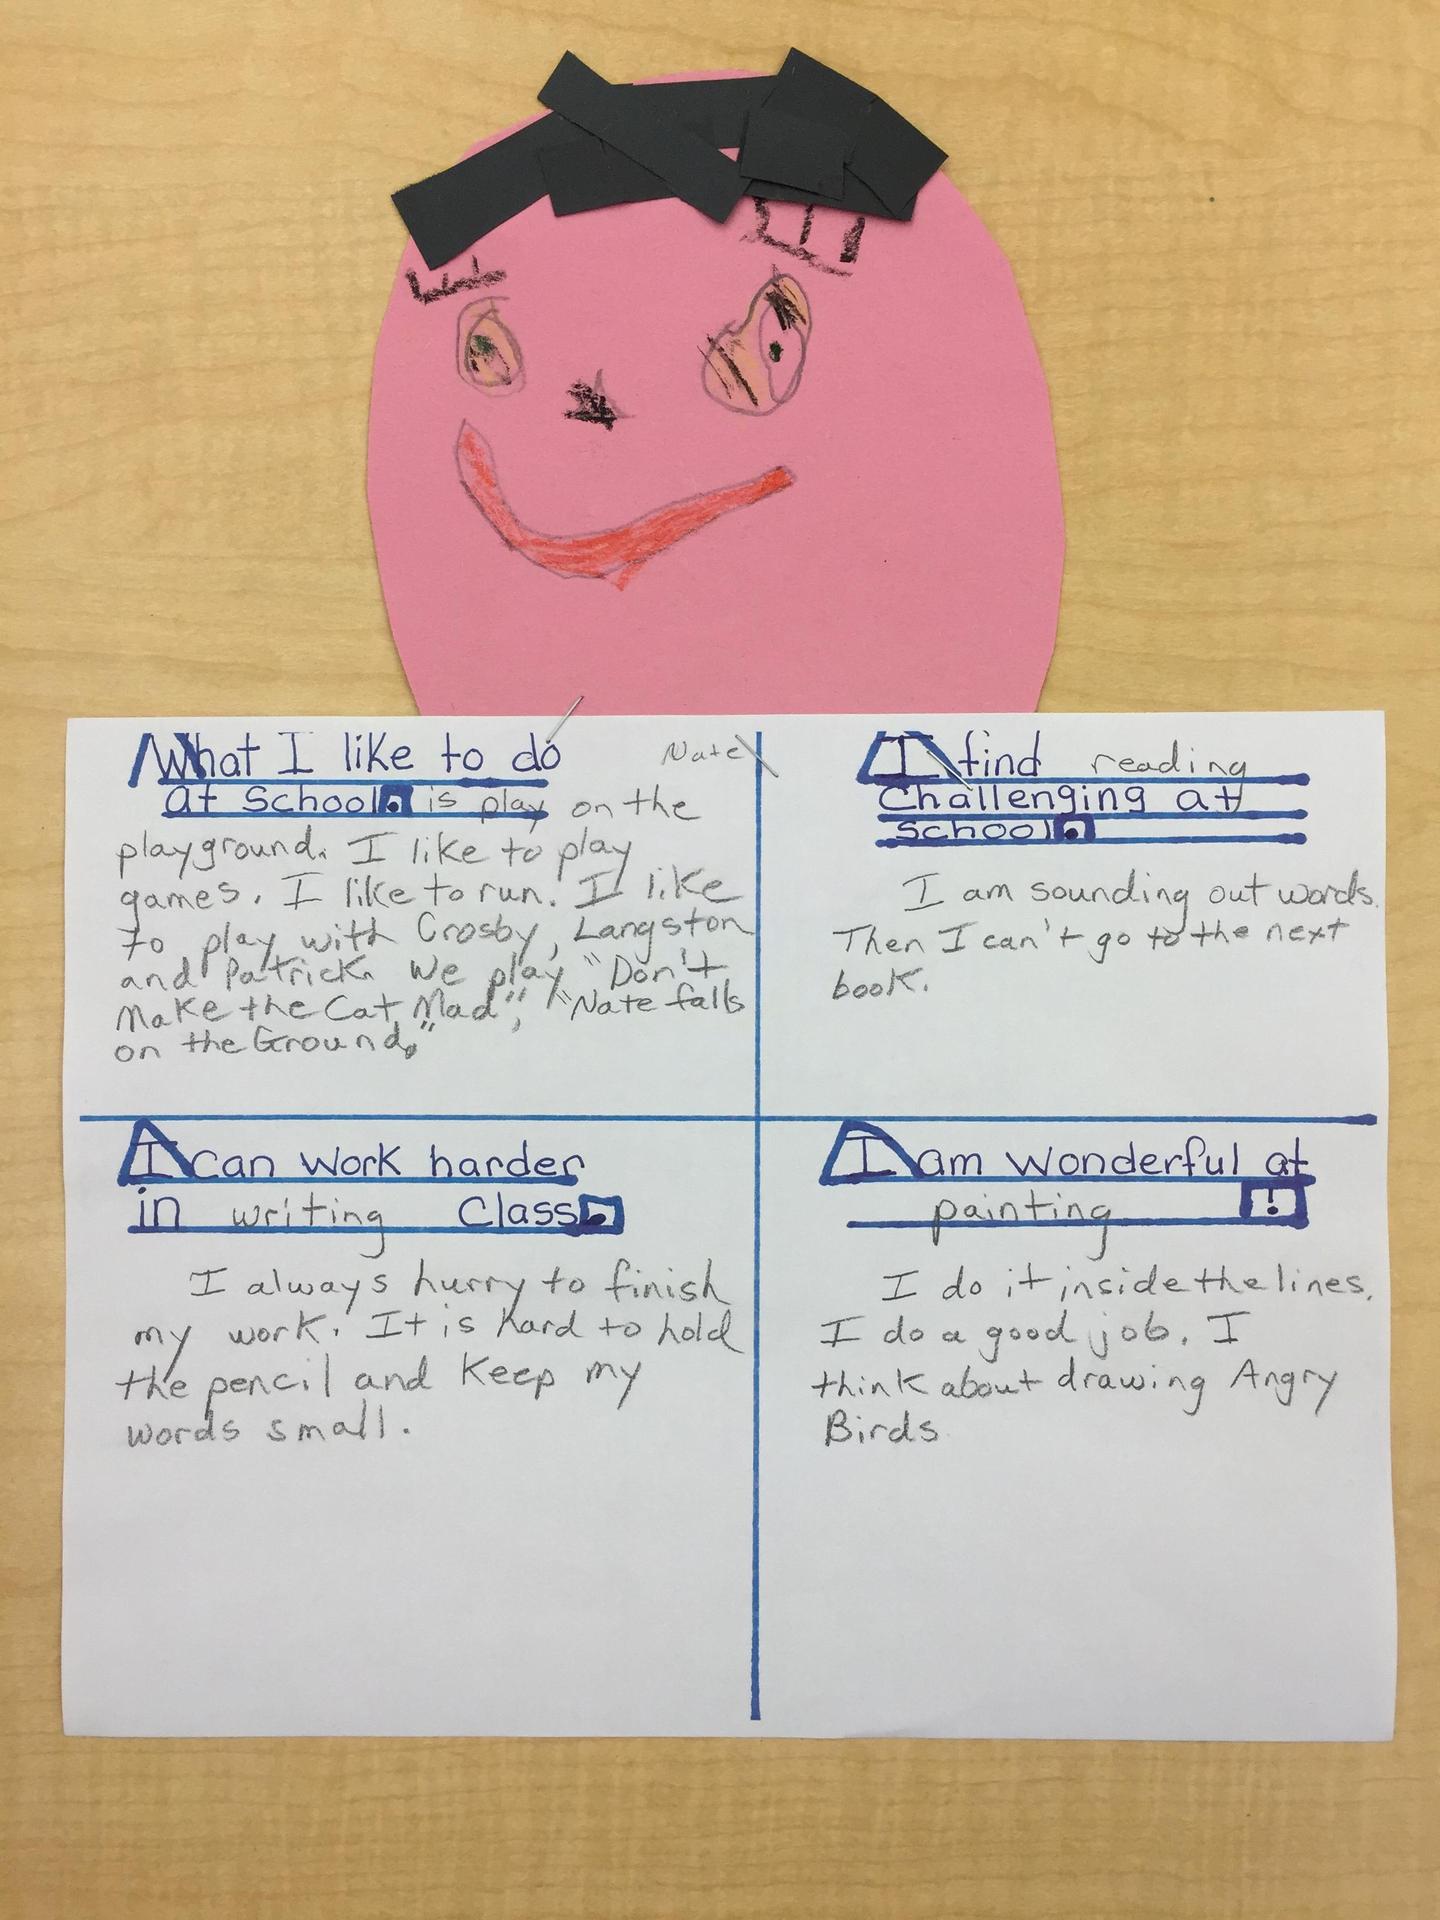 What I like to do
Nate
at school. is play on the
playground. I like to play
games. I like to run. I like
to play with Crosby, Langston
and Patrick. We play "Don't
Make the Cat Mad", "Nate falls
on the Ground."
I find reading
Challenging at
school.
I am sounding out words.
Then I can't go to the next
book.
I can work harder
in writing Class.
I always hurry to finish
my work. It is hard to hold
the pencil and keep my
words small.
I am wonderful at
painting !
I do it inside the lines.
I do a good job. I
think about drawing Angry
Birds